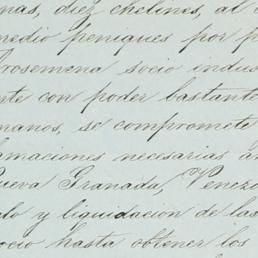 nas, diez chelines, al c
medio peniques por p
rosemena socio indus
te con poder bastante
manos, se compromete
lamaciones necesarias an
ueva Granada, Venezu
lo y liquidacion de las
ocio hasta obtener los